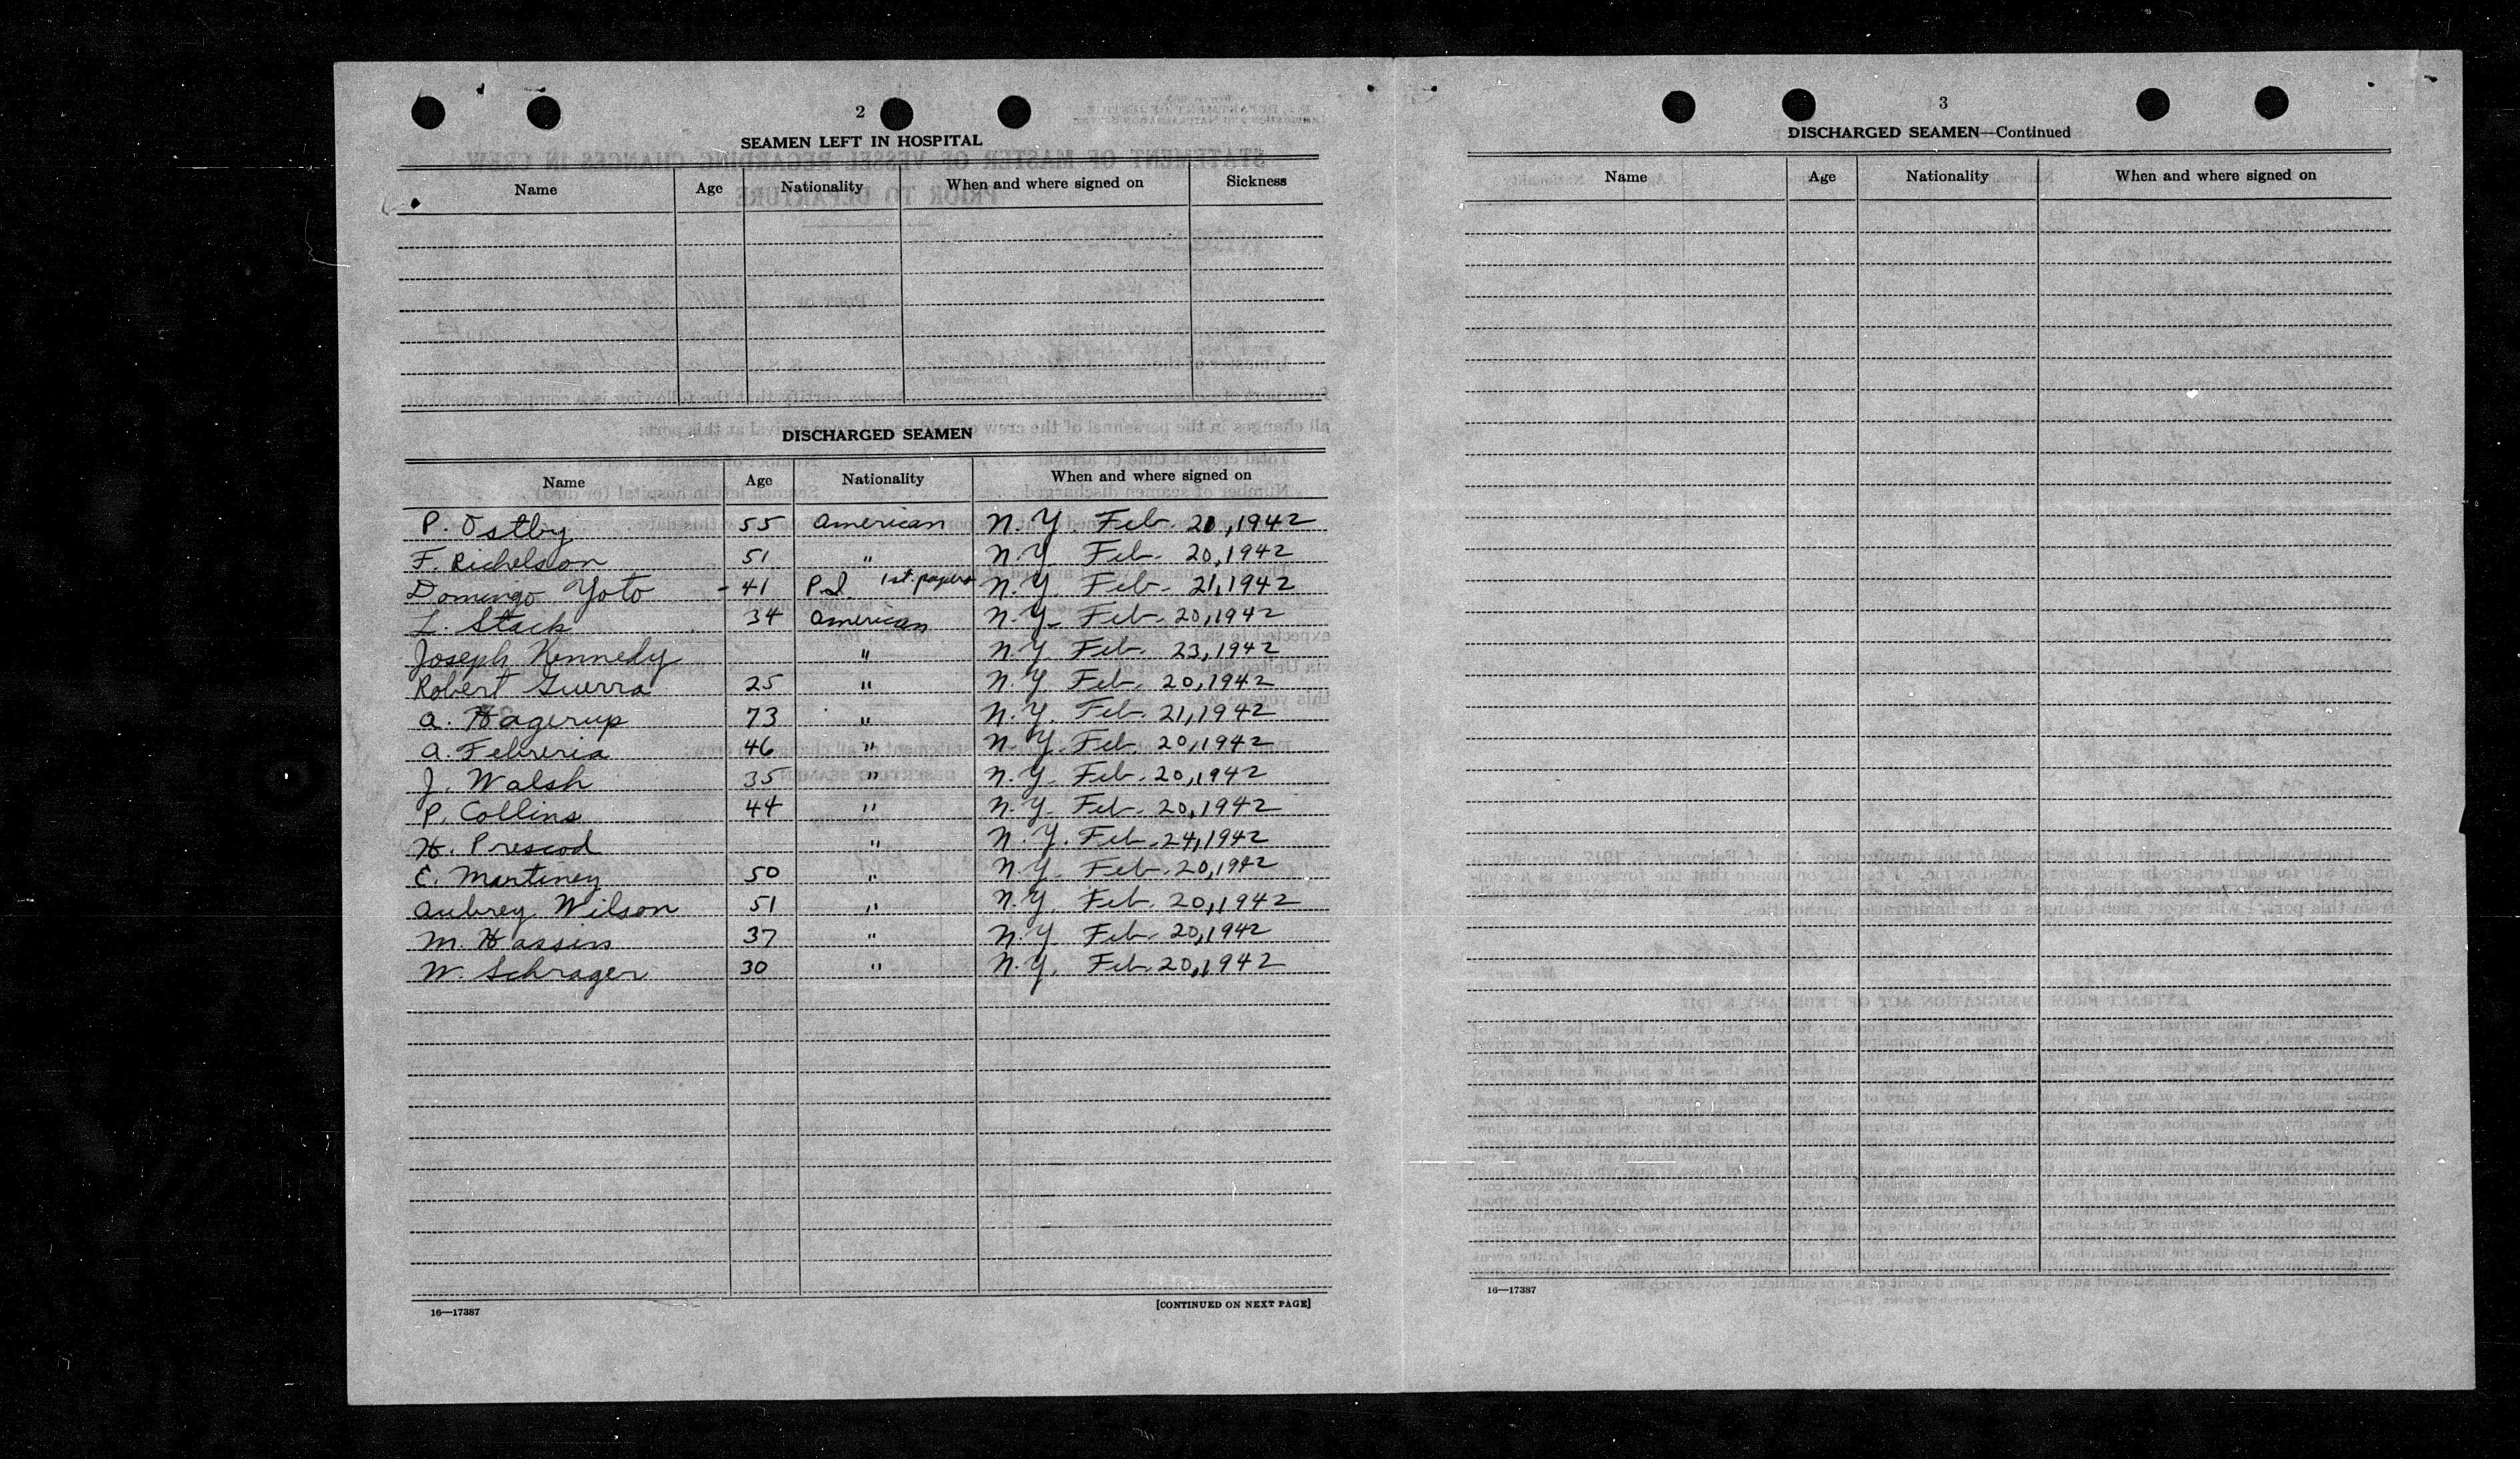 2
SEAMEN LEFT IN HOSPITAL
Name Age Nationality When and where signed on Sickness
DISCHARGED SEAMEN
Name Age Nationality When and where signed on
P. Ostby 55 American N.Y. Feb. 21, 1942
F. Richelson 51 " N.Y. Feb. 20, 1942
Domingo Yoto - 41 P.I. 1st papers N.Y. Feb. 21, 1942
L. Stack 34 American N.Y. Feb. 20, 1942
Joseph Kennedy " N.Y. Feb. 23, 1942
Robert Guerra 25 " N.Y. Feb. 20, 1942
A. Hagerup 73 " N.Y. Feb. 21, 1942
A. Febreria 46 " N.Y. Feb. 20, 1942
J. Walsh 35 " N.Y. Feb. 20, 1942
P. Collins 44 " N.Y. Feb. 20, 1942
H. Prescod " N.Y. Feb. 24, 1942
E. Martinez 50 " N.Y. Feb. 20, 1942
Aubrey Wilson 51 " N.Y. Feb. 20, 1942
M. Hassin 37 " N.Y. Feb. 20, 1942
W. Schrager 30 " N.Y. Feb. 20, 1942
16—17387 [CONTINUED ON NEXT PAGE]
3
DISCHARGED SEAMEN—Continued
Name Age Nationality When and where signed on
16—17387